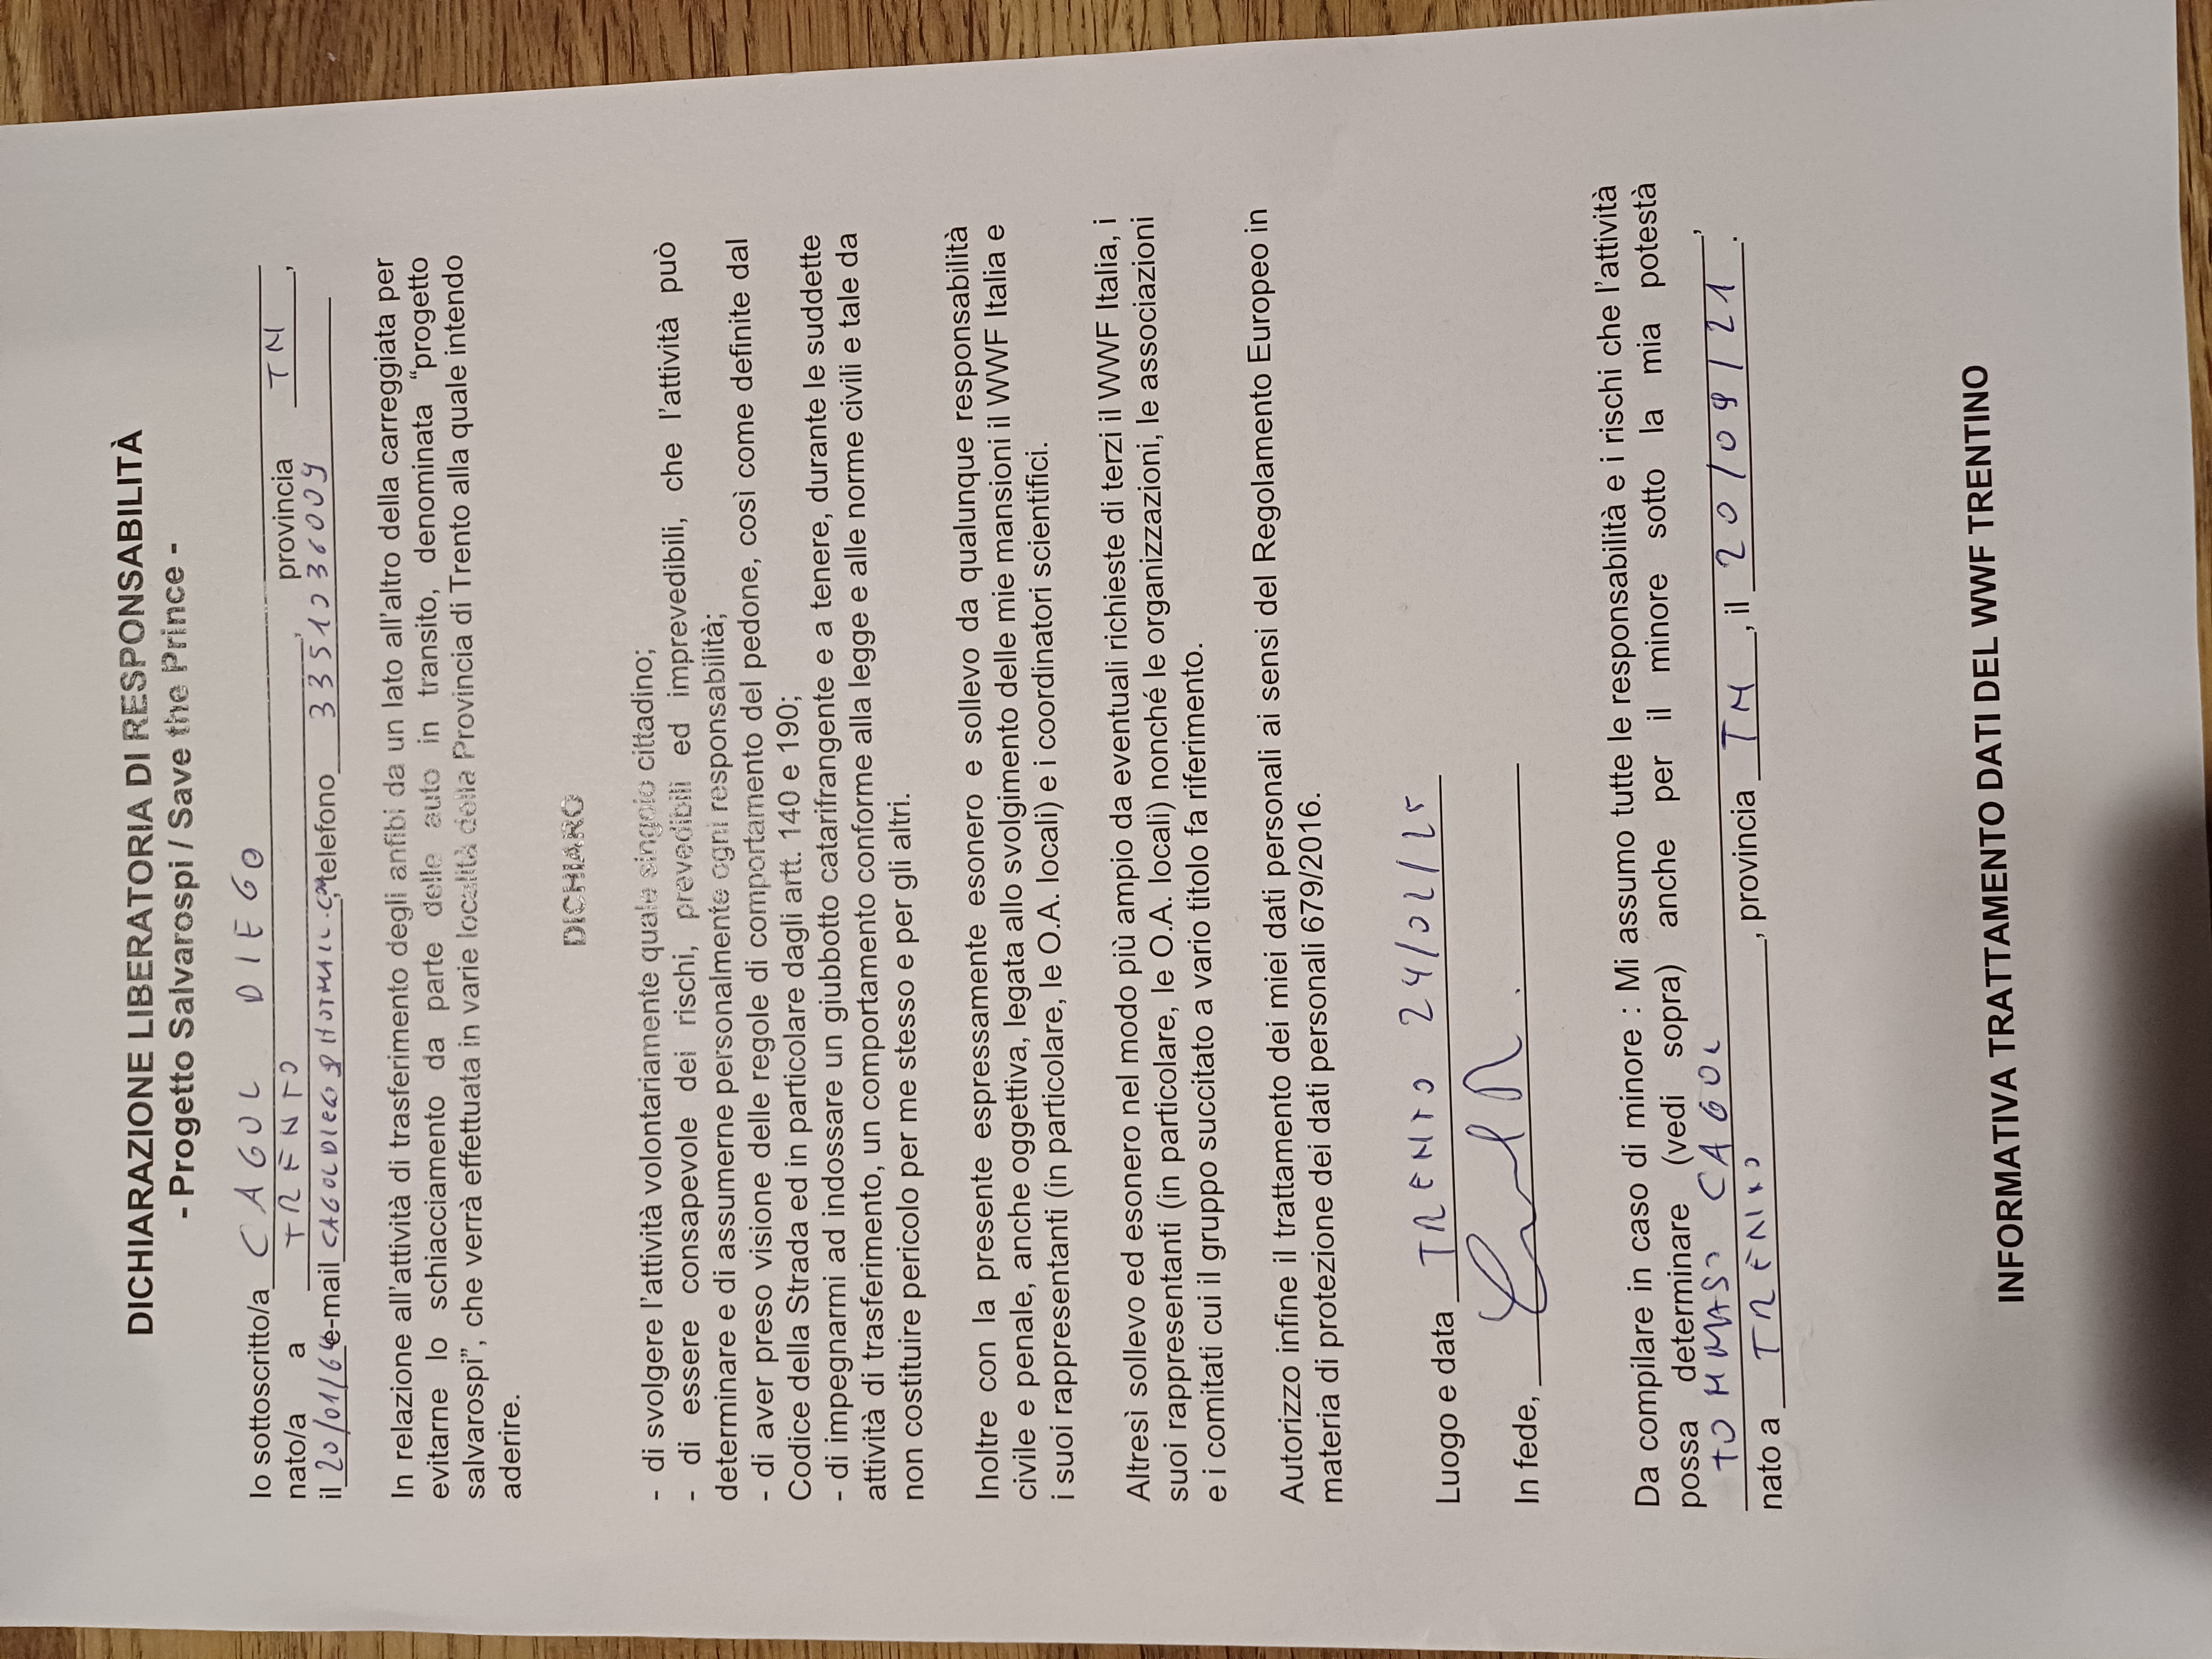 DICHIARAZIONE LIBERATORIA DI RESPONSABILITÀ
- Progetto Salvarospi / Save the Prince -
Io sottoscritto/a CAGOL DIEGO
nato/a a TRENTO, provincia TN,
il 20/01/64 e-mail CAGOLDIEGO@HOTMAIL.COM, telefono 3351036009
In relazione all'attività di trasferimento degli anfibi da un lato all'altro della carreggiata per
evitarne lo schiacciamento da parte delle auto in transito, denominata “progetto
salvarospi”, che verrà effettuata in varie località della Provincia di Trento alla quale intendo
aderire.
DICHIARO
- di svolgere l'attività volontariamente quale singolo cittadino;
- di essere consapevole dei rischi, prevedibili ed imprevedibili, che l'attività può
determinare e di assumerne personalmente ogni responsabilità;
- di aver preso visione delle regole di comportamento del pedone, così come definite dal
Codice della Strada ed in particolare dagli artt. 140 e 190;
- di impegnarmi ad indossare un giubbotto catarifrangente e a tenere, durante le suddette
attività di trasferimento, un comportamento conforme alla legge e alle norme civili e tale da
non costituire pericolo per me stesso e per gli altri.
Inoltre con la presente espressamente esonero e sollevo da qualunque responsabilità
civile e penale, anche oggettiva, legata allo svolgimento delle mie mansioni il WWF Italia e
i suoi rappresentanti (in particolare, le O.A. locali) e i coordinatori scientifici.
Altresì sollevo ed esonero nel modo più ampio da eventuali richieste di terzi il WWF Italia, i
suoi rappresentanti (in particolare, le O.A. locali) nonché le organizzazioni, le associazioni
e i comitati cui il gruppo succitato a vario titolo fa riferimento.
Autorizzo infine il trattamento dei miei dati personali ai sensi del Regolamento Europeo in
materia di protezione dei dati personali 679/2016.
Luogo e data TRENTO 24/02/25
In fede,
Da compilare in caso di minore : Mi assumo tutte le responsabilità e i rischi che l'attività
possa determinare (vedi sopra) anche per il minore sotto la mia potestà
TOMMASO CAGOL,
nato a TRENTO, provincia TN, il 20/09/21.
INFORMATIVA TRATTAMENTO DATI DEL WWF TRENTINO